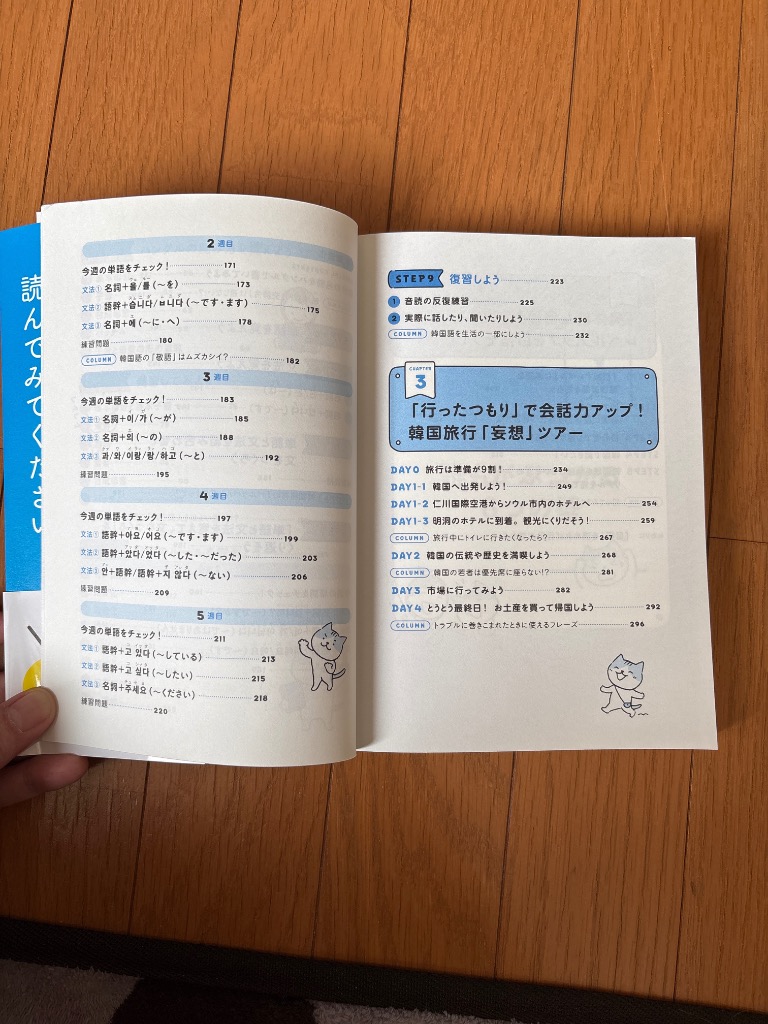 読んでみてください
2 週目
今週の単語をチェック! 171
文法① 名詞+을/를(〜を) 173
文法② 語幹+습니다/ㅂ니다(〜です・ます) 175
文法③ 名詞+에(〜に・へ) 178
練習問題 180
COLUMN 韓国語の「敬語」はムズカシイ? 182
3 週目
今週の単語をチェック! 183
文法① 名詞+이/가(〜が) 185
文法② 名詞+의(〜の) 188
文法③ 과/와/이랑/랑/하고(〜と) 192
練習問題 195
4 週目
今週の単語をチェック! 197
文法① 語幹+아요/어요(〜です・ます) 199
文法② 語幹+았다/었다(〜した・〜だった) 203
文法③ 안+語幹/語幹+지 않다(〜ない) 206
練習問題 209
5 週目
今週の単語をチェック! 211
文法① 語幹+고 있다(〜している) 213
文法② 語幹+고 싶다(〜したい) 215
文法③ 名詞+주세요(〜ください) 218
練習問題 220
STEP9 復習しよう 223
1 音読の反復練習 225
2 実際に話したり、聞いたりしよう 230
COLUMN 韓国語を生活の一部にしよう 232
CHAPTER
3
「行ったつもり」で会話力アップ!
韓国旅行「妄想」ツアー
DAY0 旅行は準備が9割! 234
DAY1-1 韓国へ出発しよう! 249
DAY1-2 仁川国際空港からソウル市内のホテルへ 254
DAY1-3 明洞のホテルに到着。観光にくりだそう! 259
COLUMN 旅行中にトイレに行きたくなったら? 267
DAY2 韓国の伝統や歴史を満喫しよう 268
COLUMN 韓国の若者は優先席に座らない!? 281
DAY3 市場に行ってみよう 282
DAY4 とうとう最終日! お土産を買って帰国しよう 292
COLUMN トラブルに巻きこまれたときに使えるフレーズ 296